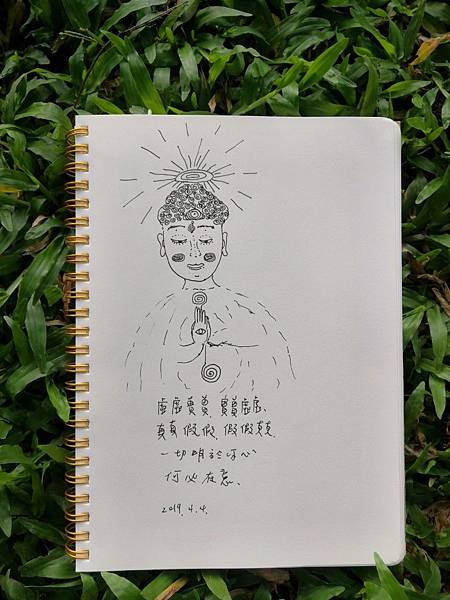 虛虛實實、實實虛虛、
真真假假、假假真真、
一切明於心
何必在意、
2019.4.4.